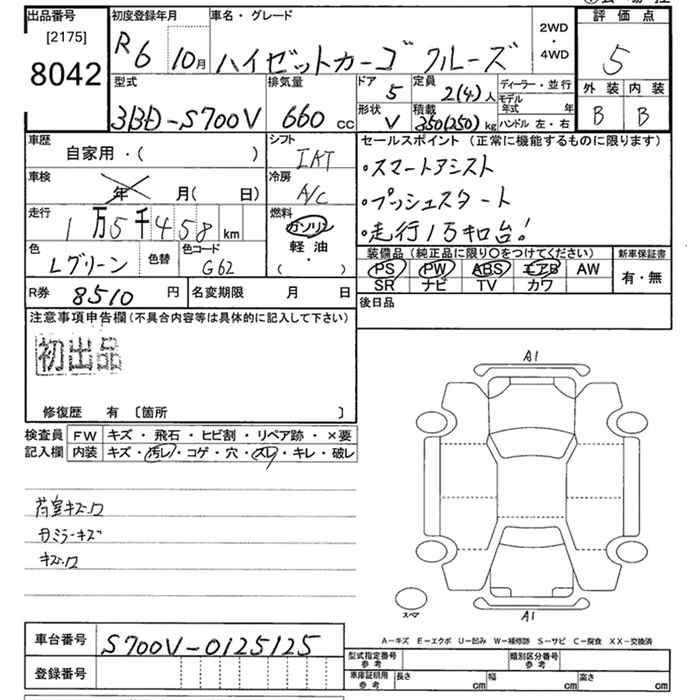 出品番号
[2175]
8042
初度登録年月
R6 10月
車名・グレード
ハイゼットカーゴ クルーズ
2WD
・
4WD
評価点
5
外装 内装
B B
型式
3BD-S700V
排気量
660 cc
ドア
5
定員
2(4)人
形状
V
積載
350(250)kg
ディーラー・並行
モデル年式 年
ハンドル 左・右
車歴
自家用・( )
シフト
IAT
車検
年 月( 日)
冷房
A/C
走行
1万5千458km
燃料
ガソリン
軽油
( ・ )
色
Lグリーン
色替
色コード
G62
R券 8510 円
名変期限 月 日
セールスポイント (正常に機能するものに限ります)
・スマートアシスト
・プッシュスタート
・走行1万キロ台!
装備品 (純正品に限り○をつけてください)
新車保証書
PS PW ABS エアB AW
SR ナビ TV カワ
有・無
後日品
注意事項申告欄(不具合内容等は具体的に記入して下さい)
初出品
修復歴 有 〔箇所 〕
検査員記入欄
FW キズ・飛石・ヒビ割・リペア跡・×要
内装 キズ・汚レ・コゲ・穴・スレ・キレ・破レ
荷室キズ・凹
サミラーキズ
キズ・凹
A1
A1
スペア
A−キズ E−エクボ U−凹み W−補修跡 S−サビ C−腐食 XX−交換済
車台番号 S700V-0125125
登録番号
型式指定番号 参考
類別区分番号 参考
車庫証明用 参考
長さ cm 幅 cm 高さ cm